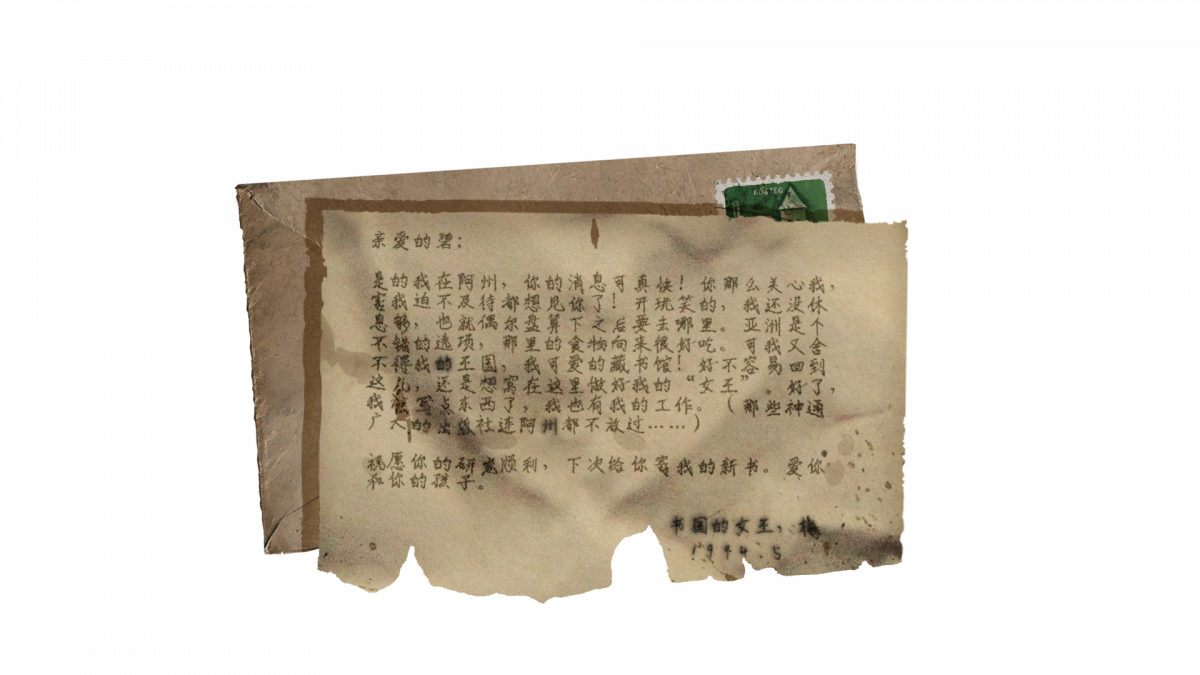 亲爱的碧：
是的我在阿州，你的消息可真快！你那么关心我，
害我迫不及待都想见你了！开玩笑的，我还没休
息够，也就偶尔盘算下之后要去哪里。亚洲是个
不错的选项，那里的食物向来很好吃。可我又舍
不得我的王国，我可爱的藏书馆！好不容易回到
这儿，还是想窝在这里做好我的“女王”。好了，
我该写点东西了，我也有我的工作。（那些神通
广大的出版社连阿州都不放过……）
祝愿你的研究顺利，下次给你寄我的新书。爱你
和你的孩子。
书国的女王，梅
1944.5